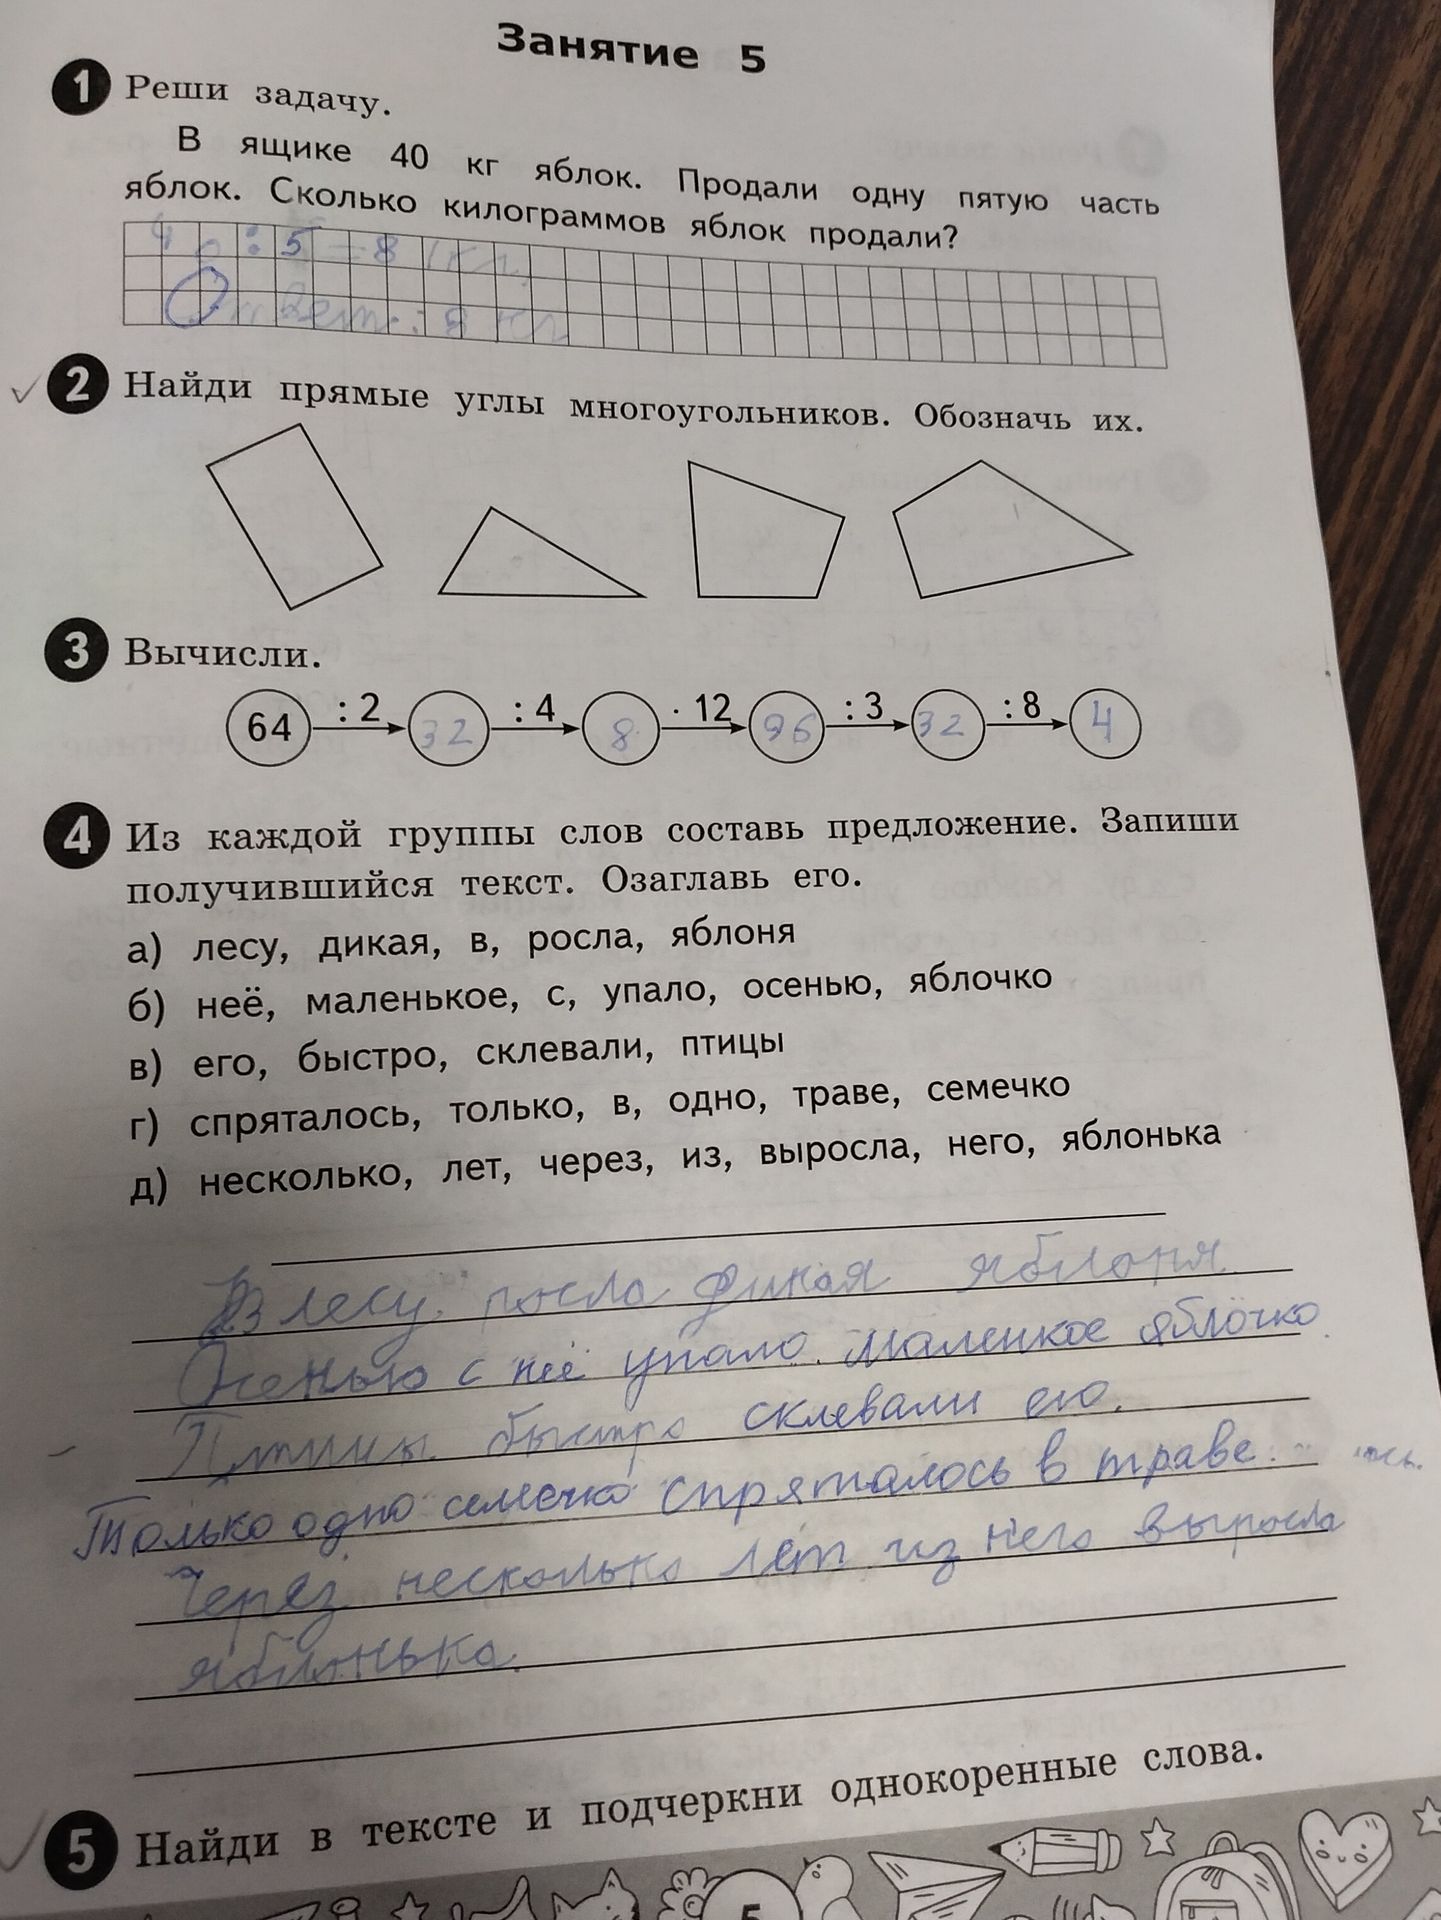 Занятие 5
1 Реши задачу.
В ящике 40 кг яблок. Продали одну пятую часть
яблок. Сколько килограммов яблок продали?
40 : 5 = 8 (кг)
Ответ: 8 кг
2 Найди прямые углы многоугольников. Обозначь их.
3 Вычисли.
64 : 2 32 : 4 8 · 12 96 : 3 32 : 8 4
4 Из каждой группы слов составь предложение. Запиши
получившийся текст. Озаглавь его.
а) лесу, дикая, в, росла, яблоня
б) неё, маленькое, с, упало, осенью, яблочко
в) его, быстро, склевали, птицы
г) спряталось, только, в, одно, траве, семечко
д) несколько, лет, через, из, выросла, него, яблонька
В лесу росла дикая яблоня
Осенью с неё упало маленкое яблочко.
Птицы быстро склевали его.
Только одно семечко спряталось в траве.
Через несколько лет из него выросла
яблонька.
5 Найди в тексте и подчеркни однокоренные слова.
5